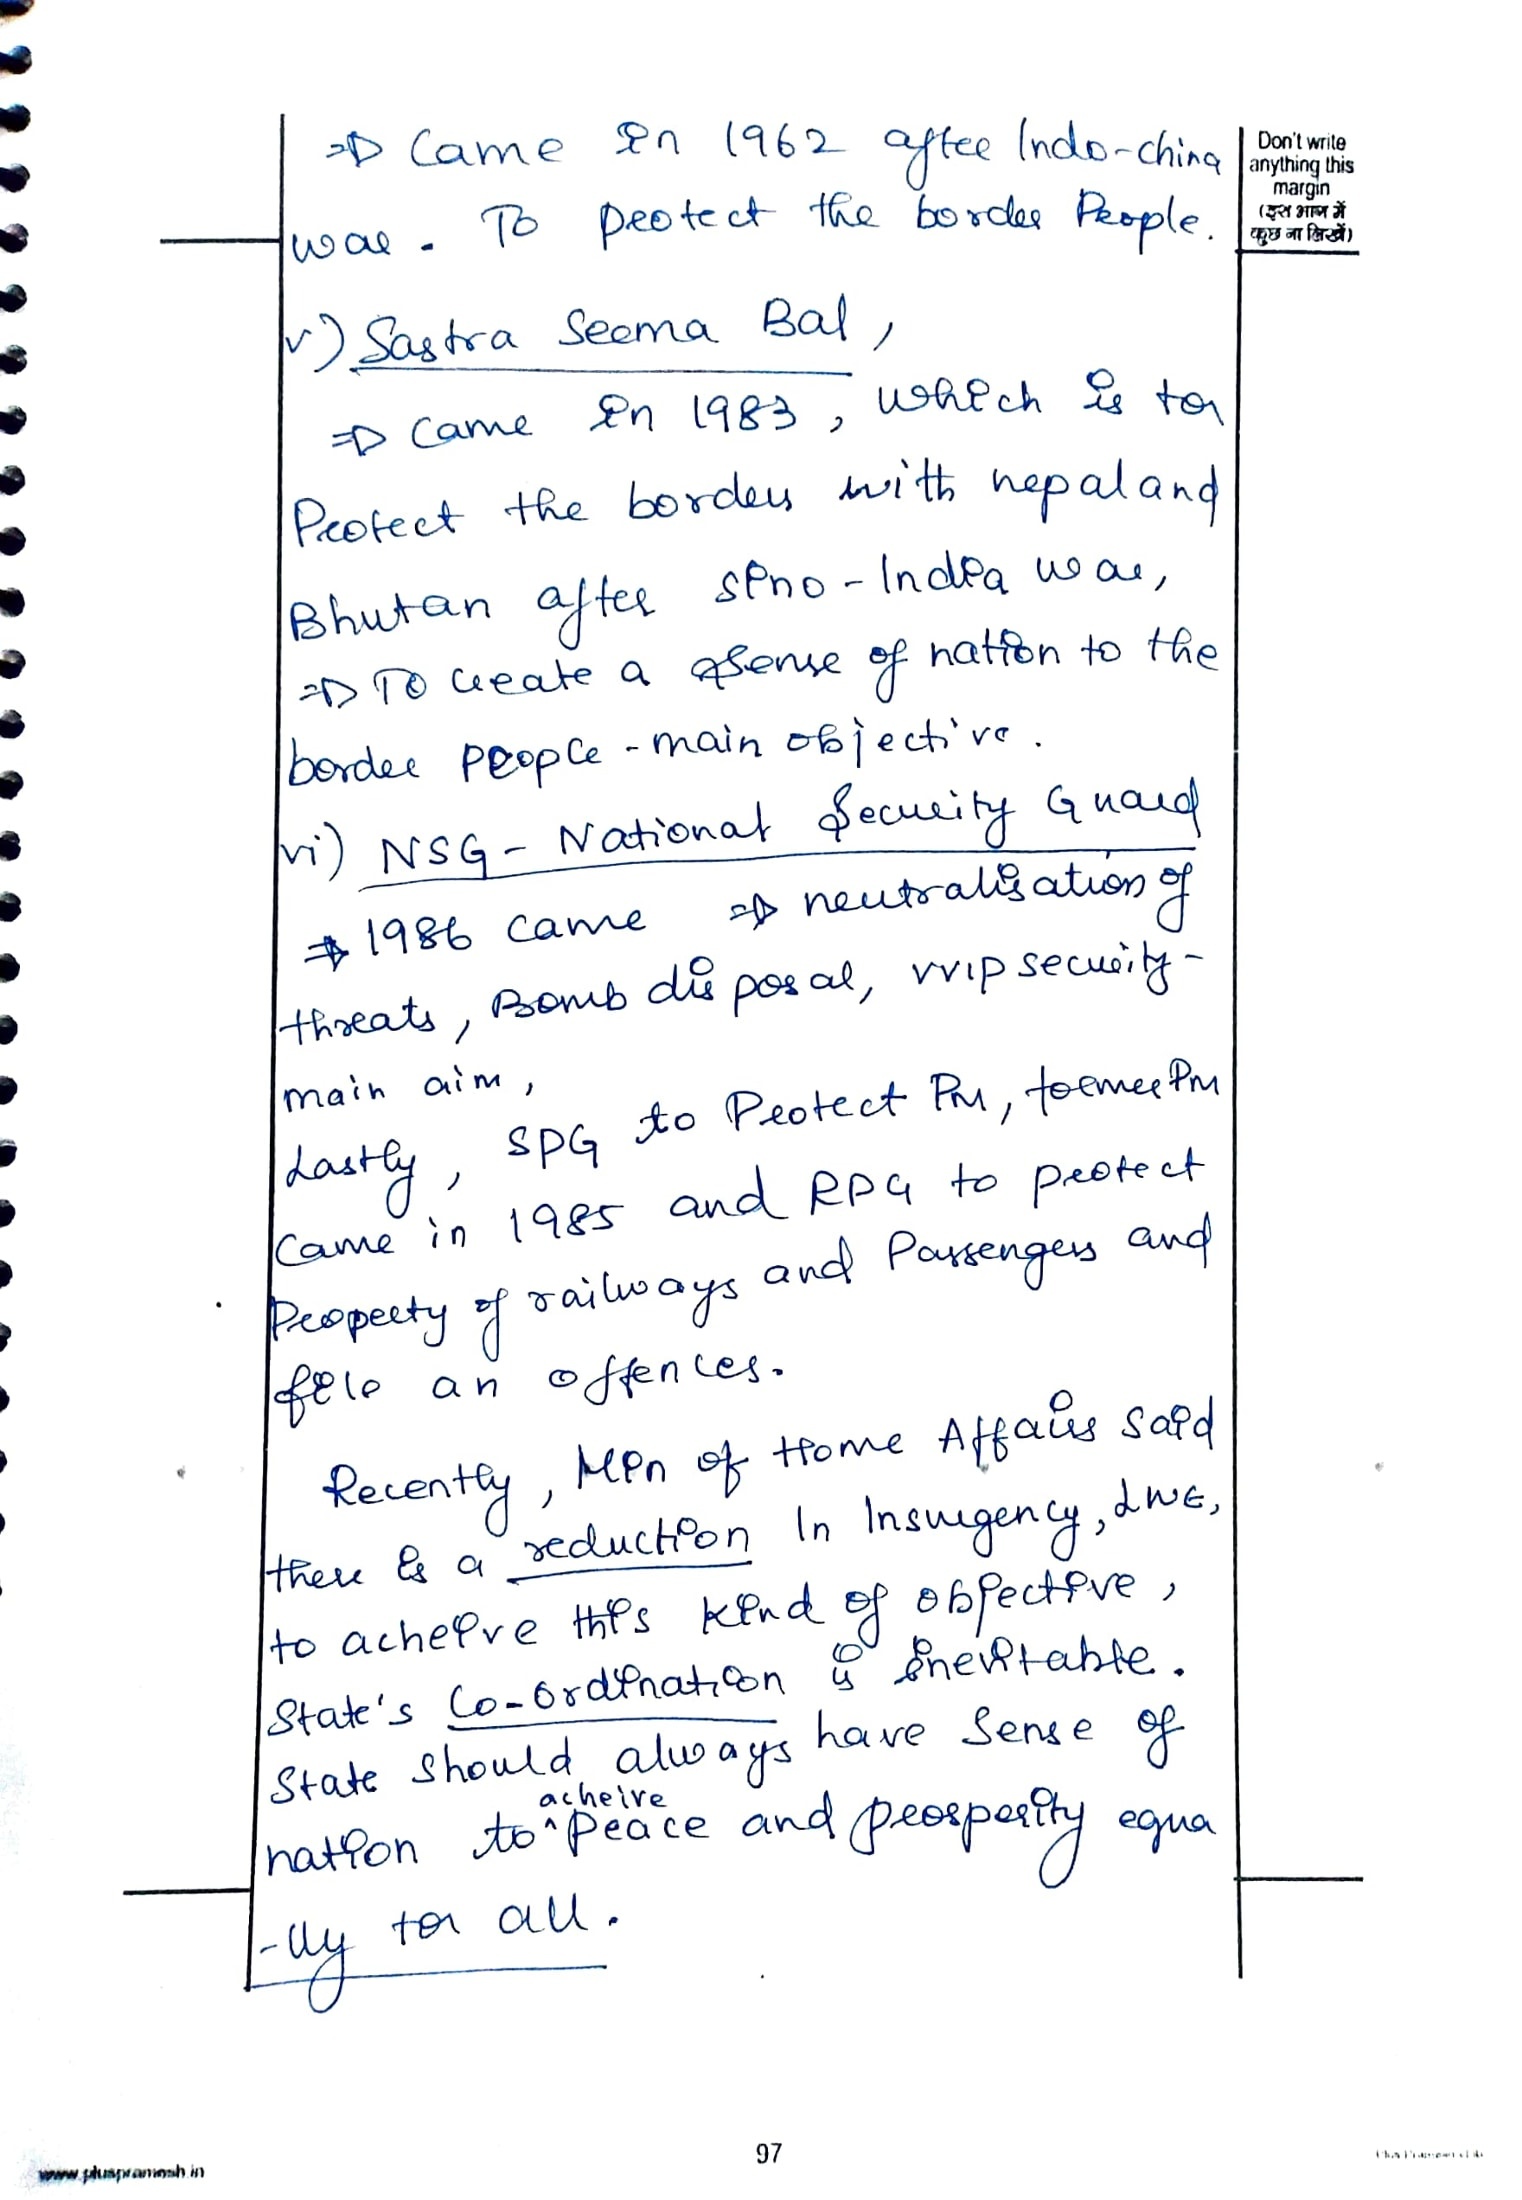 ⇒ Came in 1962 after Indo-china
war. To protect the border People.
Don't write
anything this
margin
(इस भाग में
कुछ ना लिखें)
v) Sastra Seema Bal,
⇒ Came in 1983, which is for
Protect the borders with nepal and
Bhutan after sino-India war,
⇒ To create a sense of nation to the
border people - main objective.
vi) NSG - National Security Guard
⇒ 1986 came ⇒ neutralisation of
threats, Bomb disposal, VVIP security -
main aim,
Lastly, SPG to Protect PM, former PM
Came in 1985 and RPG to protect
Property of railways and Passengers and
file an offences.
Recently, Min of Home Affairs said
there is a reduction In Insurgency, LWE,
to acheive this kind of objective,
State's Co-ordination is inevitable.
State should always have Sense of
acheive
nation to ^ Peace and prosperity equa
-lly for all.
97
www.pluspramesh.in